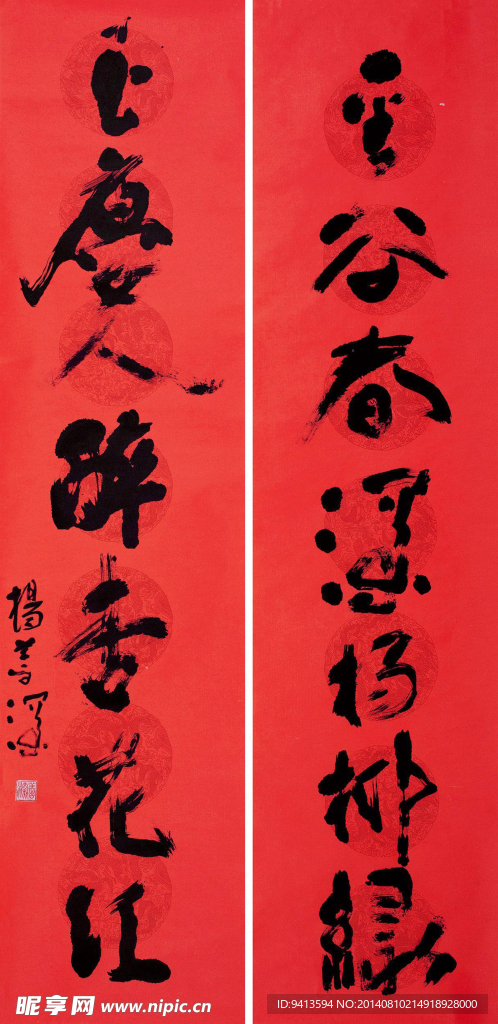 金谷春深楊柳綠
玉樓人醉杏花紅
楊善深
昵享网 www.nipic.cn
ID:9413594 NO:20140810214918928000